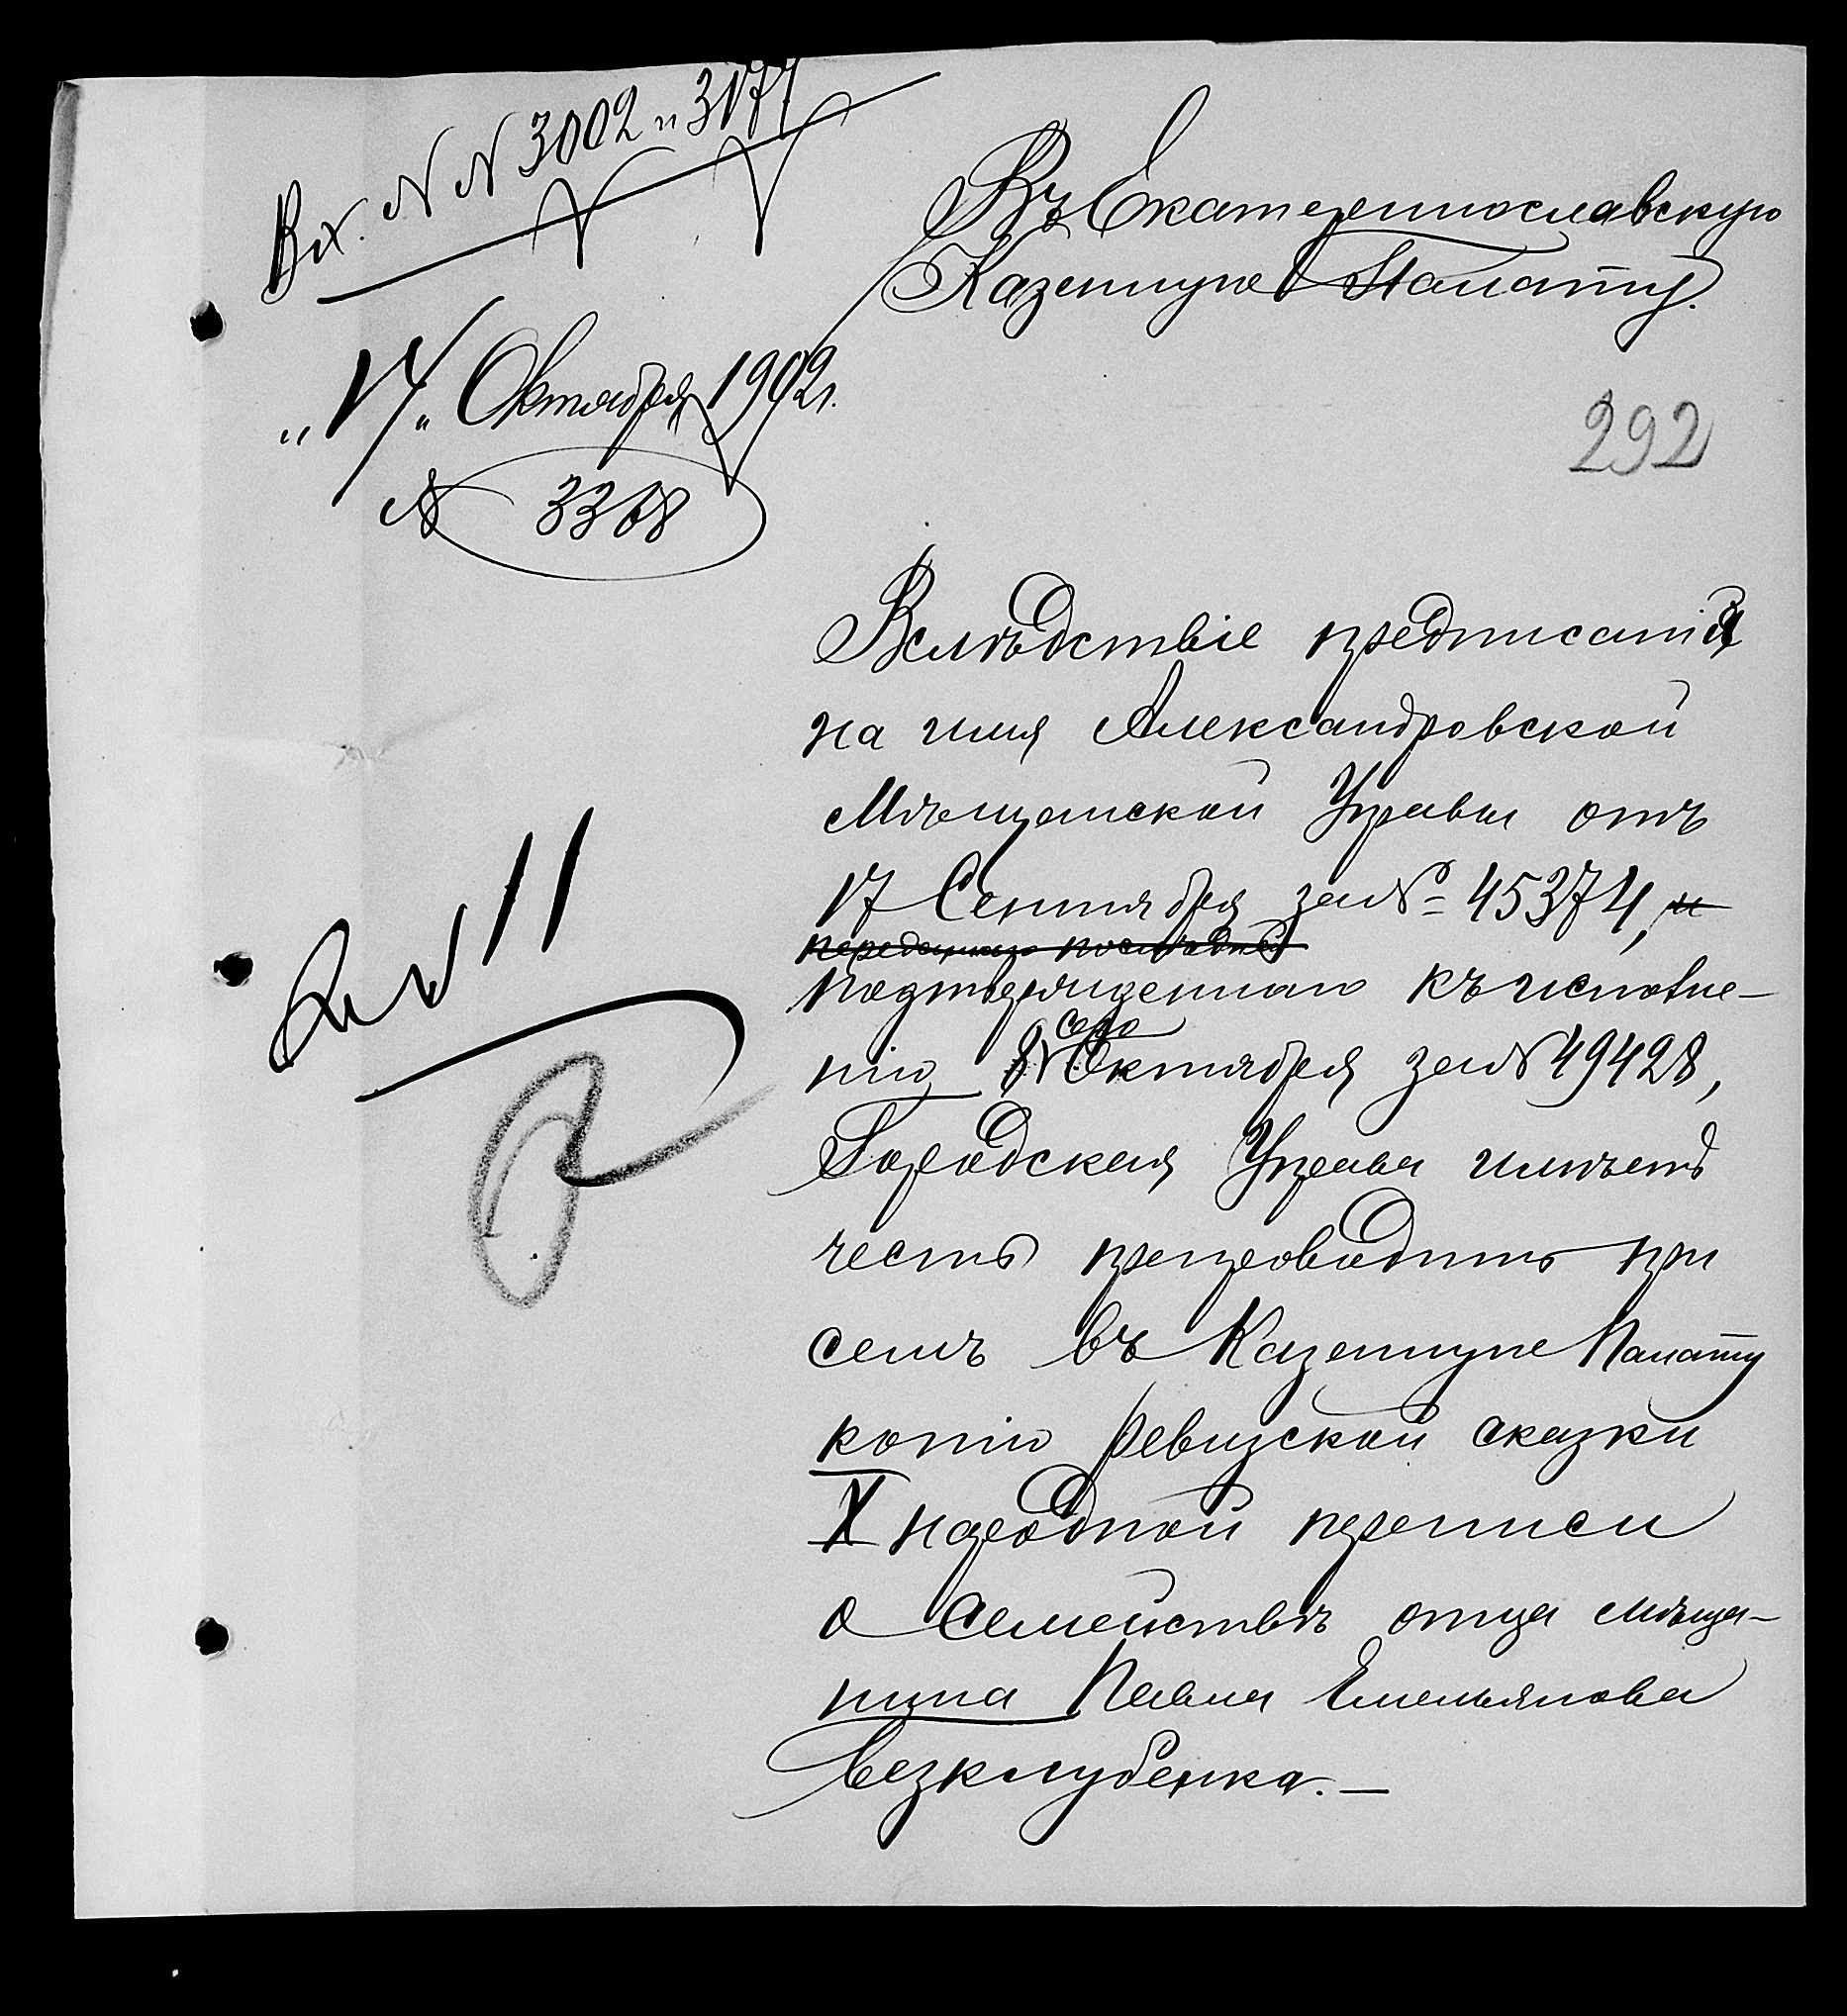 Вх. N N 3002 и 3177
Въ Екатеринославскую
Казенную Палату.
„17„ Октября 1902 г.
№ 3368
292
Вслѣдствіе предписанія
на имя Александровской
Мѣщанской Управы отъ
17 Сентября за № 45374, и
переданнаго послѣдней
подтвержденнаго къ исполне-
сего
нію 8 Октября за № 49428,
Городская Управа имѣетъ
честь препроводить при
семъ въ Казенную Палату
копію ревизской сказки
X народной переписи
о семействѣ отца мѣща-
нина Павла Емельянова
Безклубенка. —
11